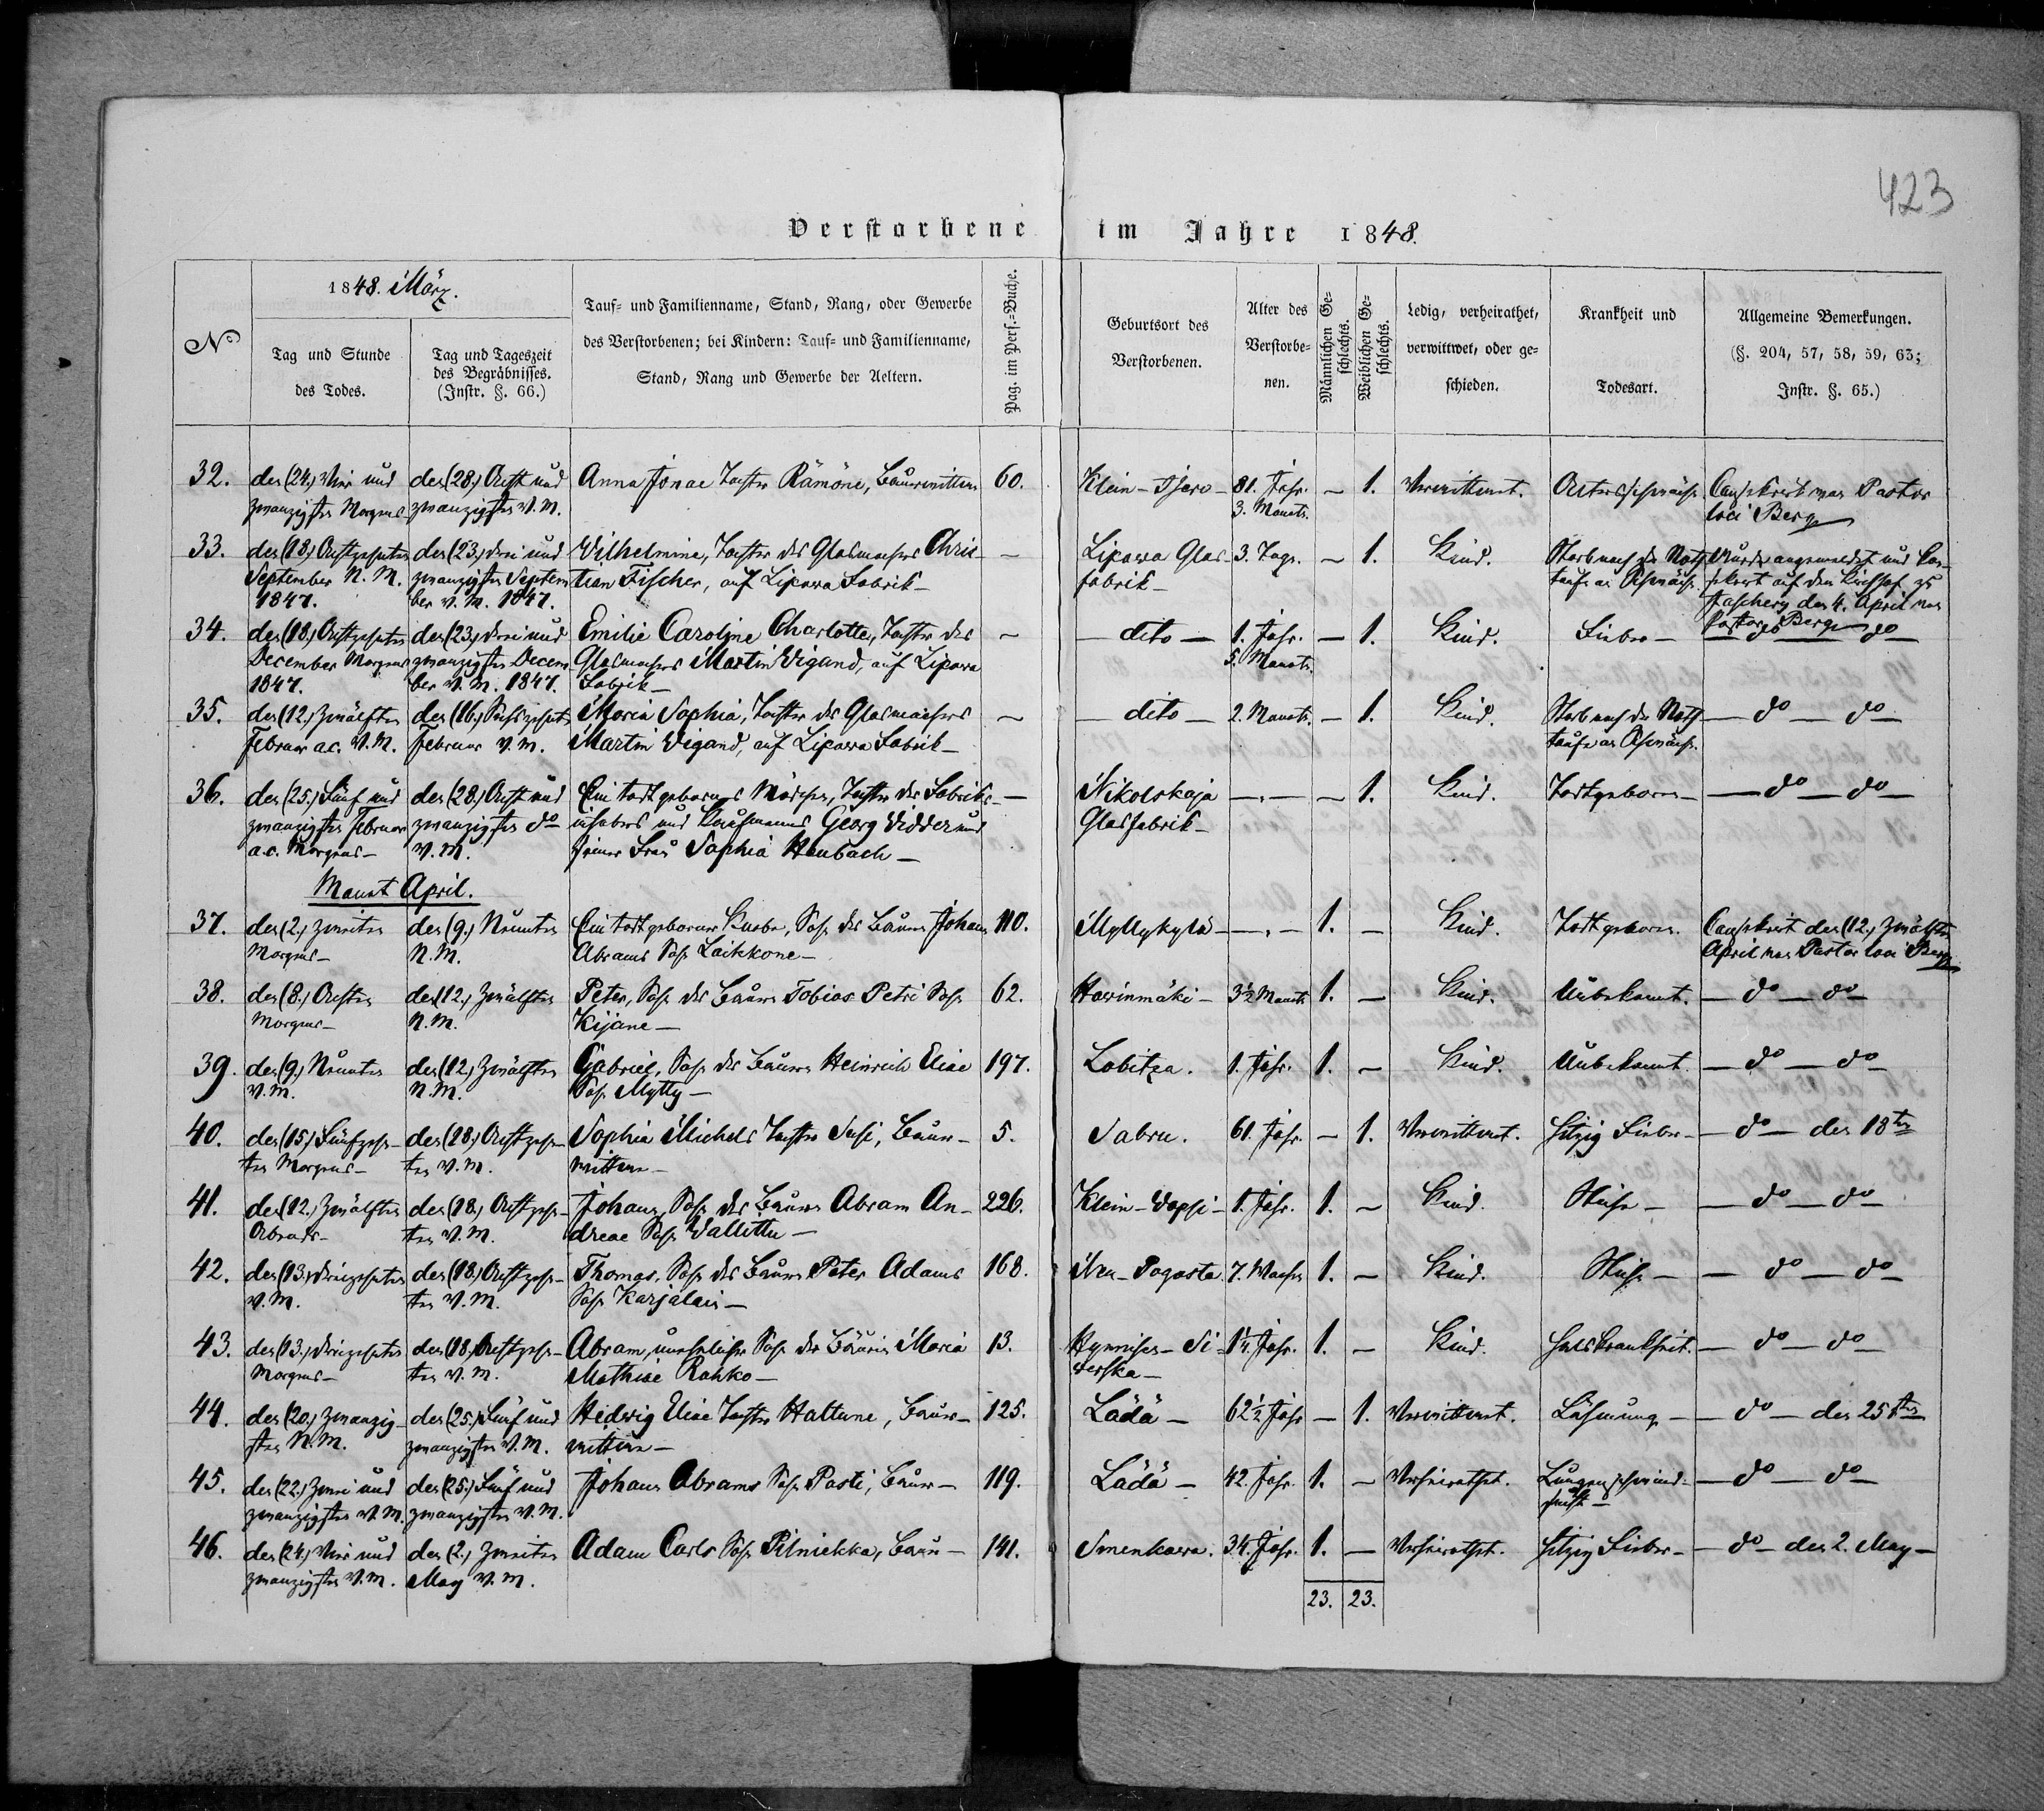 423
Verstorbene im Jahre 1848.
№
1848. März.
Tag und Stunde des Todes.
Tag und Tageszeit des Begräbnisses. (Instr. §. 66.)
Tauf- und Familienname, Stand, Rang, oder Gewerbe des Verstorbenen; bei Kindern: Tauf- und Familienname, Stand, Rang und Gewerbe der Aeltern.
Pag. im Pers.-Buche.
Geburtsort des Verstorbenen.
Alter des Verstorbenen.
Männlichen Geschlechts.
Weiblichen Geschlechts.
Ledig, verheirathet, verwittwet, oder geschieden.
Krankheit und Todesart.
Allgemeine Bemerkungen. (§. 204, 57, 58, 59, 63; Instr. §. 65.)
32. den (24.) Vier und den (28.) Acht und Anna Jonae Tochter Rämöne, Bauerwittwe 60. Klein- 81. Jahr. – 1. Verwittwet. Altersschwäche Consekrirt von Pastor
zwanzigsten Morgens zwanzigsten V. M. 3. Monate. loci Berg
33. den (18.) Achtzehnten den (23.) Drei und Wilhelmine, Tochter des Glasmachers Chris- – Lipowa Glas- 3. Tage. – 1. Kind. Starb nach der Noth- Wurde angemeldet und Con-
September N. M. zwanzigsten Septem- tian Fischer, auf Lipowa Fabrik – fabrik – taufe an Schwäche. sekrirt auf dem Kirchhof zu
1847. ber V. M. 1847. den 4. April von
34. den (18.) Achtzehnten den (23.) Drei und Emilie Caroline Charlotte, Tochter des – – dito – 1. Jahr. – 1. Kind. Fieber – Pastor Berg do do
December Morgens zwanzigsten Decem- Glasmachers Martin Wigand, auf Lipowa 5. Monate.
1847. ber V. M. 1847. Fabrik –
35. den (12.) Zwölften den (16.) Sechszehnten Maria Sophia, Tochter des Glasmachers – – dito – 2. Monate. – 1. Kind. Starb nach der Noth- – do – do –
Februar a.c. V. M. Februar V. M. Martin Wigand, auf Lipowa Fabrik – taufe an Schwäche.
36. den (25.) Fünf und den (28.) Acht und Ein todtgebornes Mädchen, Tochter des Fabriks- – Nikolskaja –.– – 1. Kind. Todtgeboren – – do – do –
zwanzigsten Februar zwanzigsten do inhabers und Kaufmanns Georg Widder und Glasfabrik –
a.c. Morgens – V. M. seiner Frau Sophia Heubach –
Monat April.
37. den (2.) Zweiten den (9.) Neunten Ein todtgeborner Knabe, Sohn des Bauern Johann 110. Myllykylä – –.– 1. – Kind. Todtgeboren. Consekrirt den (12.) Zwölften
Morgens – N. M. Abrams Sohn Laikkone – April von Pastor loci Berg
38. den (8.) Achten den (12.) Zwölften Peter, Sohn des Bauern Tobias Petri Sohn 62. Hawinmäki – 3½ Monate 1. – Kind. Unbekannt. – do – do –
Morgens – N. M. Kijane –
39. den (9.) Neunten den (12.) Zwölften Gabriel, Sohn des Bauern Heinrich Eliae 197. Lobitza. 1. Jahr. 1. – Kind. Unbekannt. – do – do –
V. M. N. M. Sohn Mytty –
40. den (15.) Fünfzehn- den (18.) Achtzehn- Sophia Michels Tochter Susi, Bauer- 5. Sabru. 61. Jahr. – 1. Verwittwet. Hitzig Fieber – – do – den 18ten
ten Morgens – ten V. M. wittwe –
41. den (12.) Zwölften den (18.) Achtzehn- Johann, Sohn des Bauern Abram An- 226. Klein-Wopsi – 1. Jahr. 1. – Kind. – do – do –
Abends – ten V. M. dreae Sohn Wallittu –
42. den (13.) Dreizehnten den (18.) Achtzehn- Thomas, Sohn des Bauern Peter Adams 168. Neu-Pogosta. 7. Wochen 1. – Kind. – do – do –
V. M. ten V. M. Sohn Karjalain –
43. den (13.) Dreizehnten den (18.) Achtzehn- Abram, unehelicher Sohn der Bäurin Maria 13. 1¼ Jahr. 1. – Kind. Halskrankheit. – do – do –
Morgens – ten V. M. Mathiae Rahko –
44. den (20.) Zwanzig- den (25.) Fünf und Hedwig Eliae Tochter Hattune, Bauer- 125. Lädä – 62½ Jahr – 1. Verwittwet. Lähmung – – do – den 25ten
sten N. M. zwanzigsten V. M. wittwe –
45. den (22.) Zwei und den (25.) Fünf und Johann Abrams Sohn Pasti, Bauer – 119. Lädä – 42. Jahr. 1. – Verheirathet. Lungenschwind- – do – do –
zwanzigsten V. M. zwanzigsten V. M. sucht –
46. den (24.) Vier und den (2.) Zweiten Adam Carls Sohn Pilniekka, Bauer – 141. Smenkowa. 34. Jahr. 1. – Verheirathet. Hitzig Fieber – – do – den 2. May –
zwanzigsten V. M. May V. M.
23. 23.